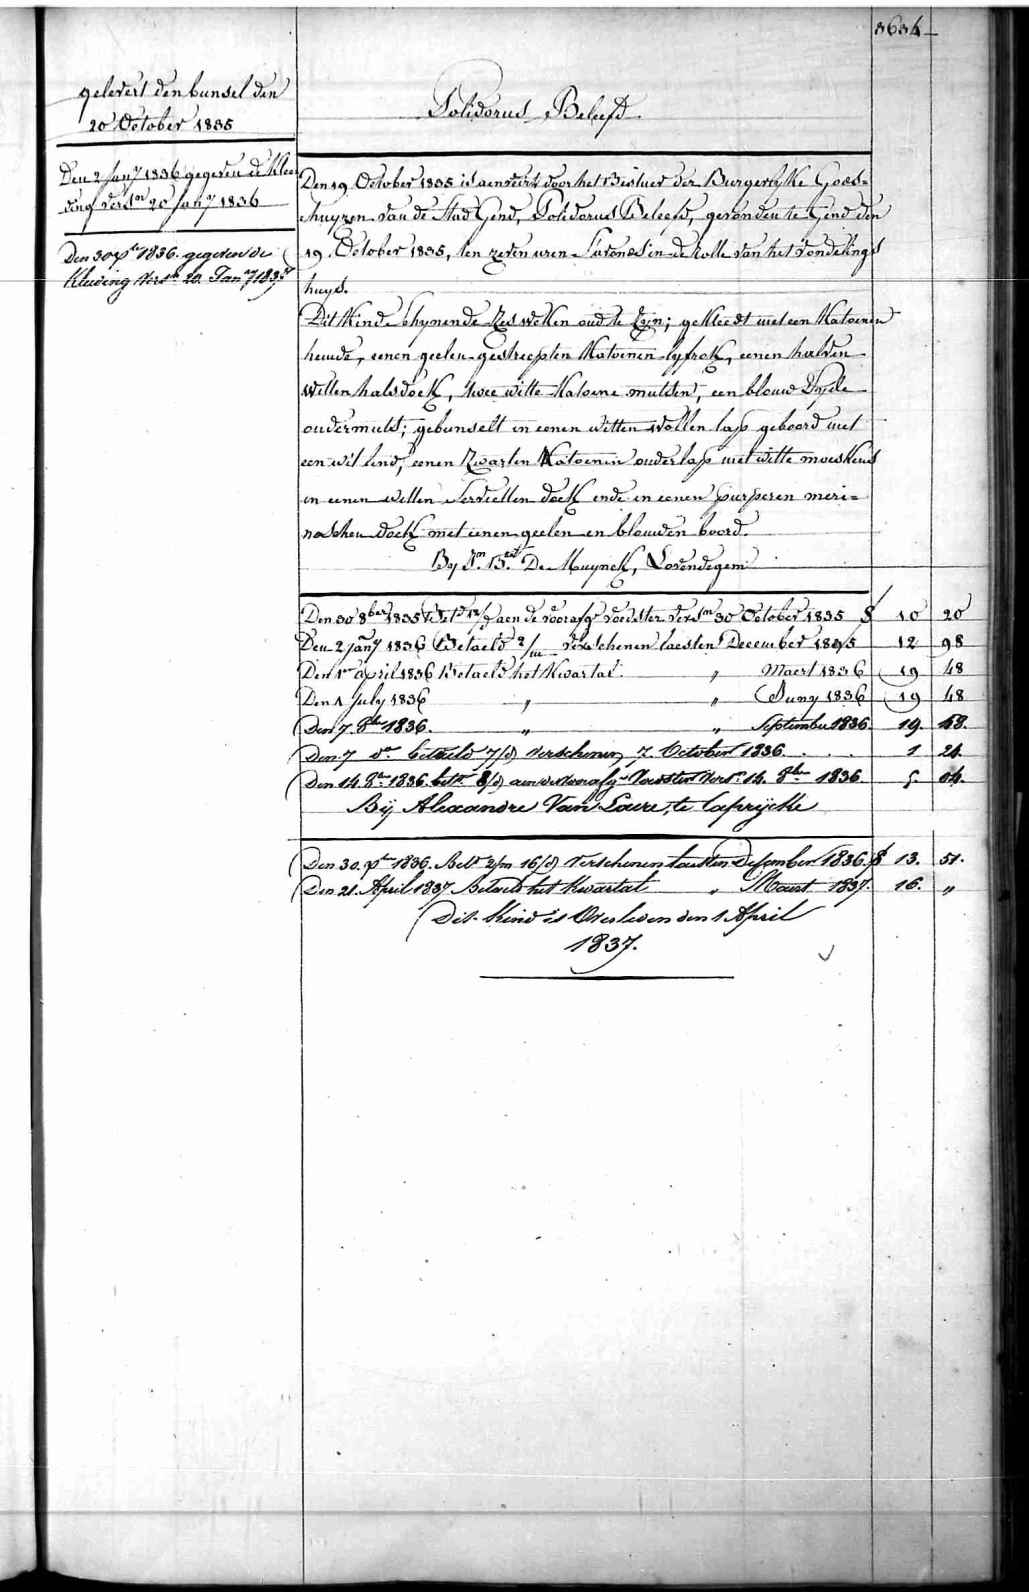 3634
gelevert den bunsel den
20 October 1835
Den 2 Jany 1836 gegeven de klee
ding versn 20 Jany 1836
Den 30 xbr 1836. gegeven de
kleeding versn 20. Jany 1837
Polidorus Beleefd.
Den 19 October 1835 is aenveirt door het Bestuer der Burgerlyke Gods=
huyzen van de Stad Gend, Polidorus Beleefd, gevonden te Gend den
19. October 1835, ten zeven uren s'avonds in de Rolle van het vondelings
huys.
Dit Kind schynende zes weken oud te zyn; gekleedt met een Katoenen
hemde, eenen geelen gestreepten Katoenen lyfrok, eenen halven
witten halsdoek, twee witte Katoene mutsen, een blouw
ondermuts; gebunselt in eenen witten wollen lap geboord met
een wit lind, eenen zwarten Katoenen onderlap met witte moeskens
in eenen witten Servietten doek ende in eenen purperen meri=
noschen doek met eenen geelen en blouwen boord.
By De Muynck, Lovendegem
Den 30 8ber 1835 Betd 12/d aen de voorafge voedster versn 30 October 1835 f 10 20
Den 2 Jany 1836 Betaeld 2/m verschenen laesten December 1835 12 98
Den 1r april 1836 Betaeld het Kwartal " Maert 1836 19 48
Den 1 July 1836 " " Juny 1836 19 48
Den 7. 8br 1836. " " September 1836. 19. 48.
Den 7 do betaeld 7/d verschenen 7. October 1836. . . . 1 24
Den 14. 8br 1836. bet. 8/d aen de voorafge Voedster vers. 14. 8br 1836 5 04.
Bij Alexandre Van Laere, te Caprijcke
Den 30. xbr 1836. Betd 2/m 16/d Verschenen laesten December 1836. f 13. 51.
Den 21. April 1837 Betaeld het Kwartal " Maert 1837. 16. "
Dit Kind is Overleden den 1 April
1837.